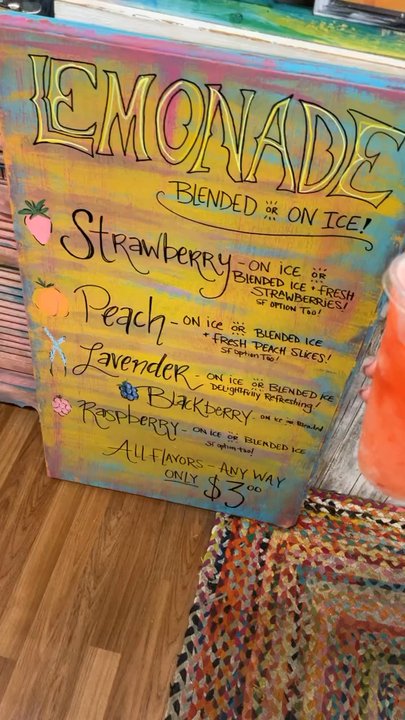 LEMONADE
BLENDED OR ON ICE!
Strawberry - ON ICE OR
BLENDED ICE + FRESH
STRAWBERRIES!
SF OPTION TOO!
Peach - ON ICE OR BLENDED ICE
+ FRESH PEACH SLICES!
SF OPTION TOO!
Lavender - ON ICE OR BLENDED ICE
DELIGHTFULLY REFRESHING!
BLACKBERRY - ON ICE OR BLENDED
RASPBERRY - ON ICE OR BLENDED ICE
SF OPTION TOO!
ALL FLAVORS - ANY WAY
ONLY $3.00